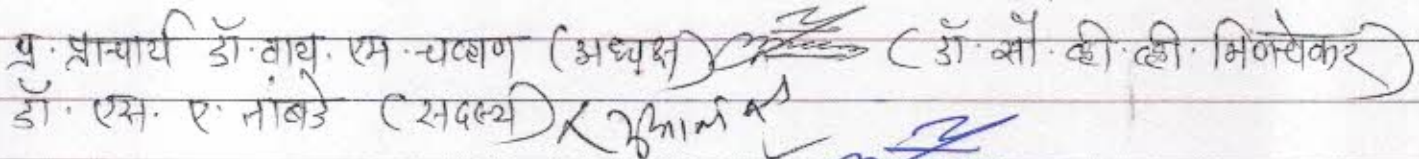 प्र. प्राचार्य डॉ. वाय. एम. चव्हाण (अध्यक्ष) (डॉ. सौ. व्ही. व्ही. मिणचेकर)
डॉ. एस. ए. तांबडे (सदस्य)